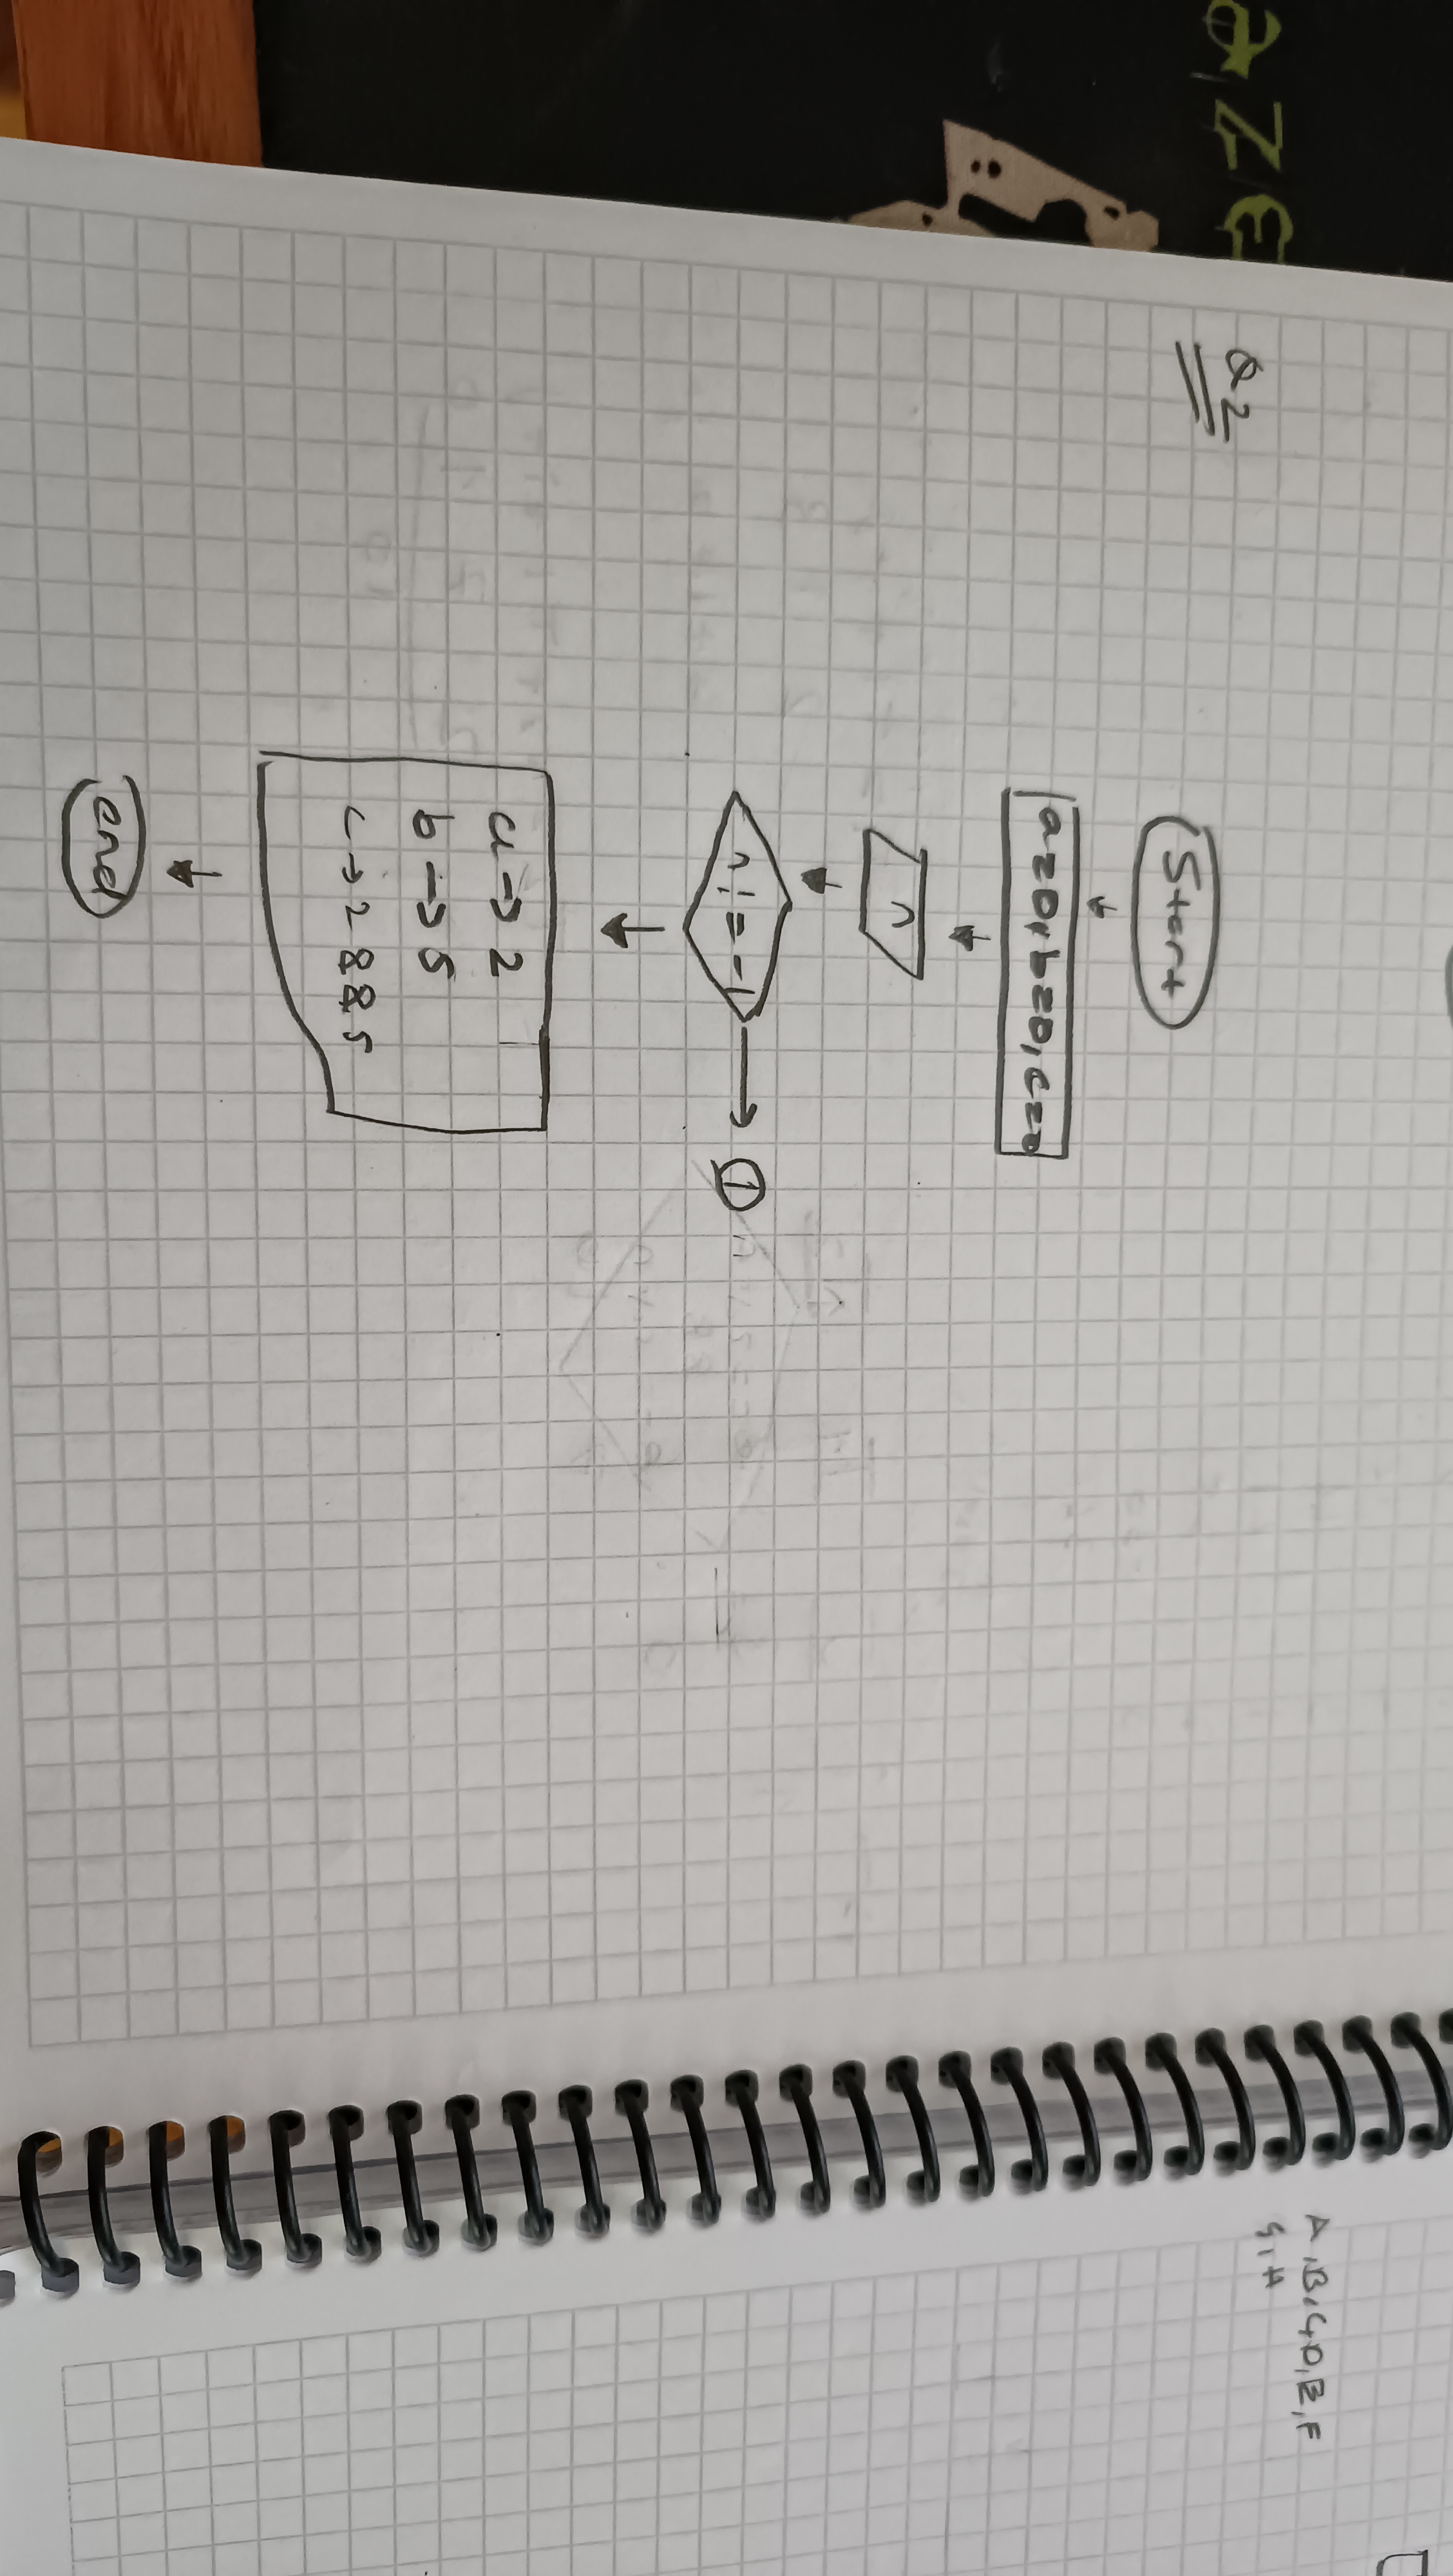 Q2
Start
a=0, b=0, c=0
n
n != -1
1
a → 2
b → 5
c → 2 & & 5
end
A, B, C, D, E, F
G, H